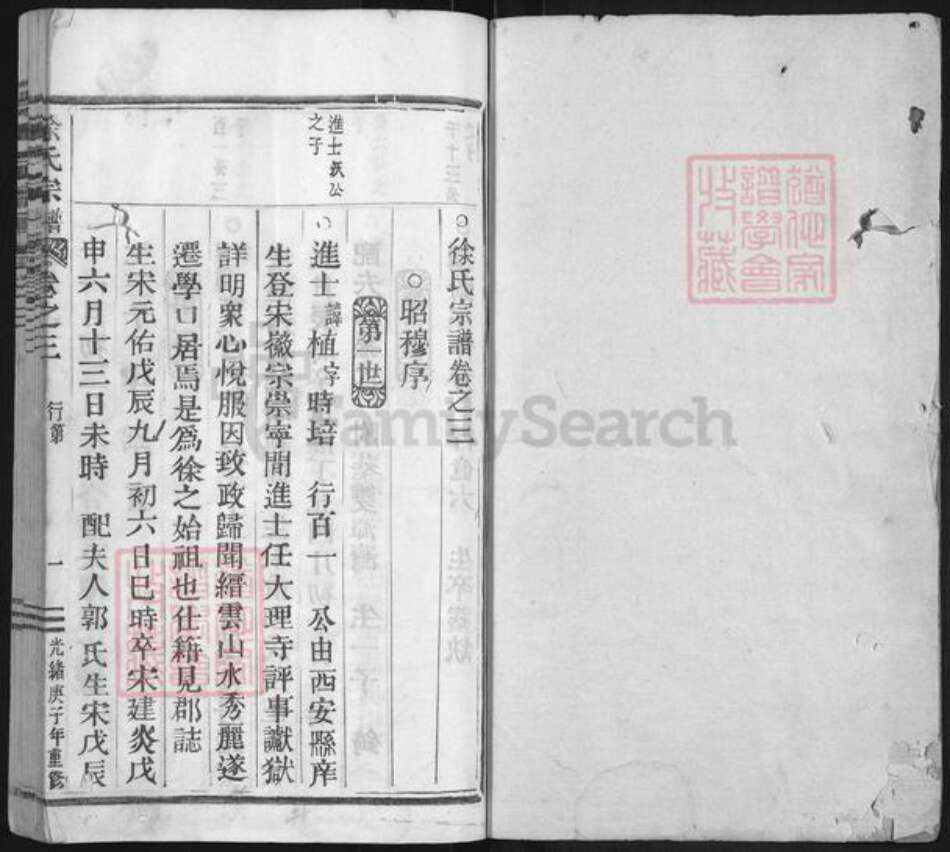 徐氏宗譜卷之三
昭穆序
第一世
進士
之子
進士諱植字時培 行百一 公由西安縣庠
生登宋徽宗崇寧間進士任大理寺評事讞獄
詳明衆心悅服因致政歸聞縉雲山水秀麗遂
遷學口居焉是爲徐之始祖也仕籍見郡誌
生宋元佑戊辰九月初六日巳時卒宋建炎戊
申六月十三日未時 配夫人郭氏生宋戊辰
徐氏宗譜 卷之三 行第 一 光緒庚子年重修
譜學會
收藏
FamilySearch